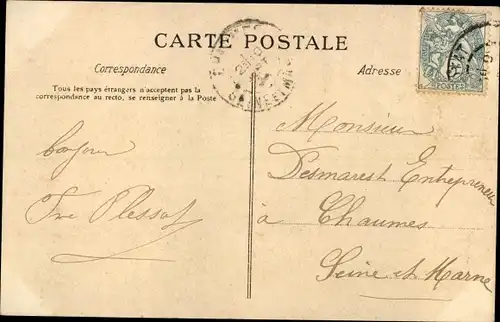 CARTE POSTALE
Correspondance
Adresse
Tous les pays étrangers n'acceptent pas la
correspondance au recto, se renseigner à la Poste
bonjour
Plessot
Monsieur
Desmarest Entrepreneur
à Chaumes
Seine et Marne
POSTES